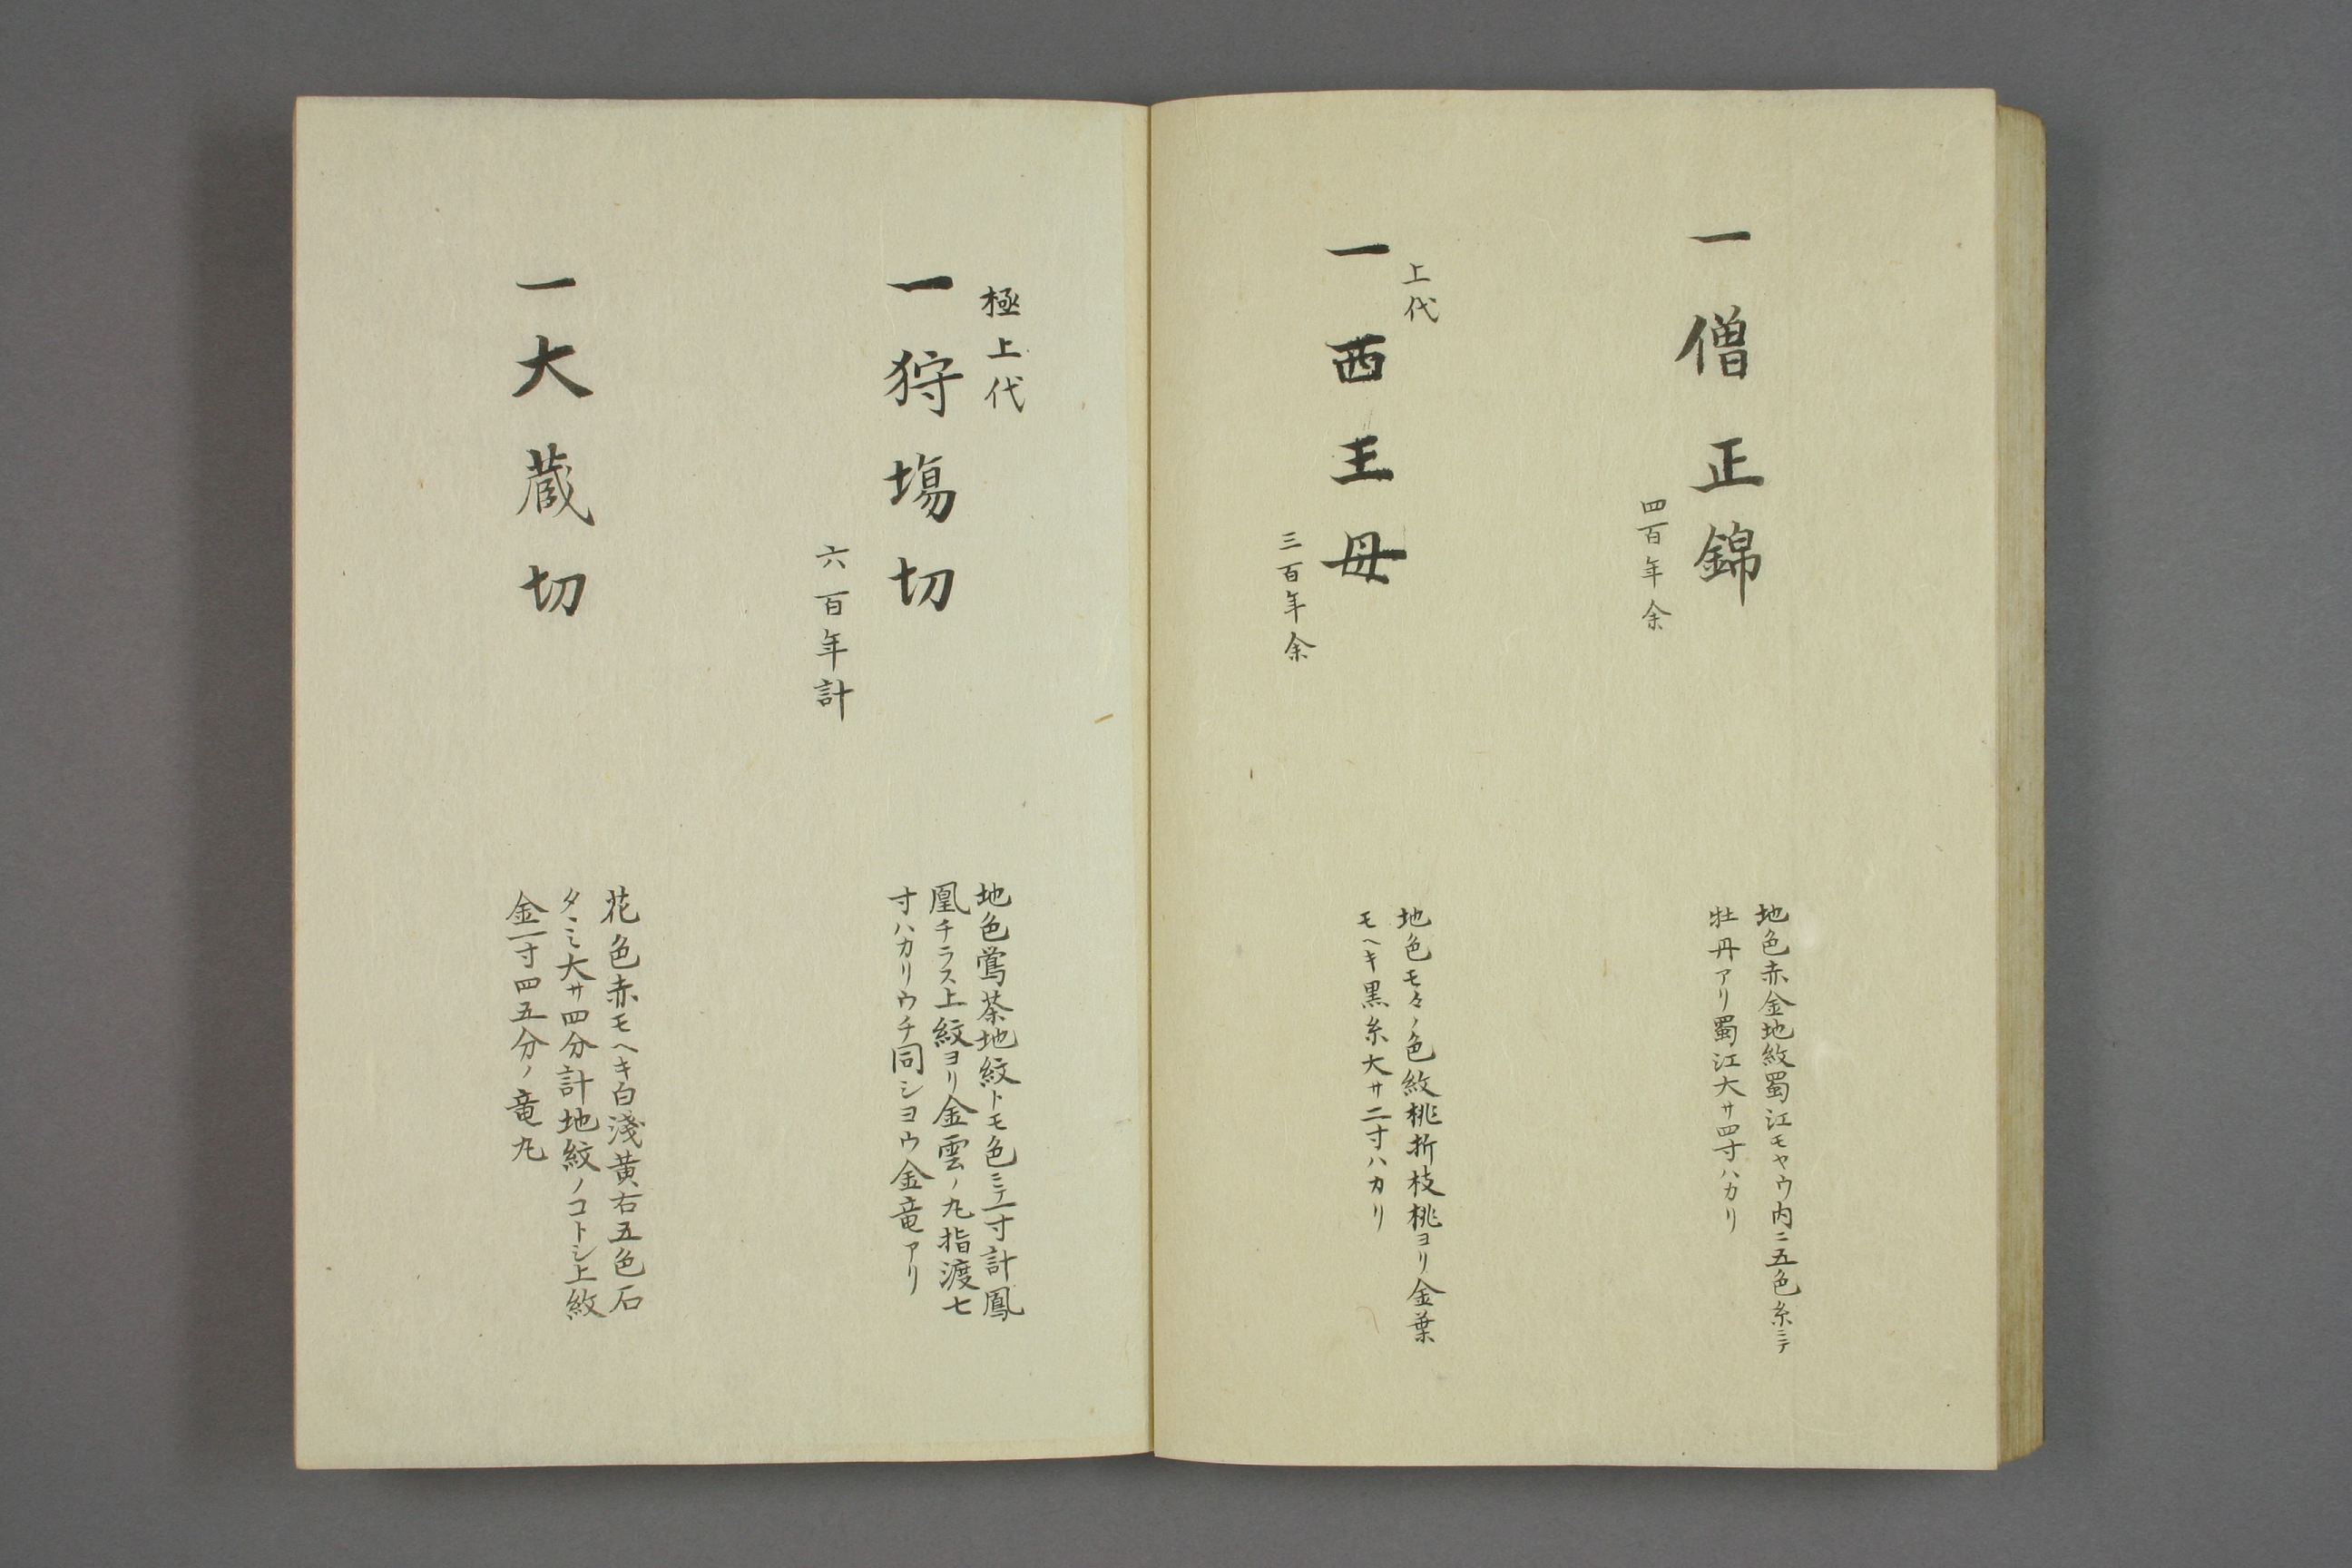 一僧正錦
四百年余
地色赤金地紋蜀江モヤウ内ニ五色糸ニテ
牡丹アリ蜀江大サ四寸ハカリ
上代
一西王母
三百年余
地色モヽノ色紋桃折枝桃ヨリ金葉
モヘキ黒糸大サ二寸ハカリ
極上代
一狩塲切
六百年計
地色鶯茶地紋トモ色ニテ一寸計鳳
凰チラス上紋ヨリ金雲ノ丸指渡七
寸ハカリウチ同シヨウ金竜アリ
一大蔵切
花色赤モヘキ白淺黄右五色石
タヽミ大サ四分計地紋ノコトシ上紋
金一寸四五分ノ竜丸